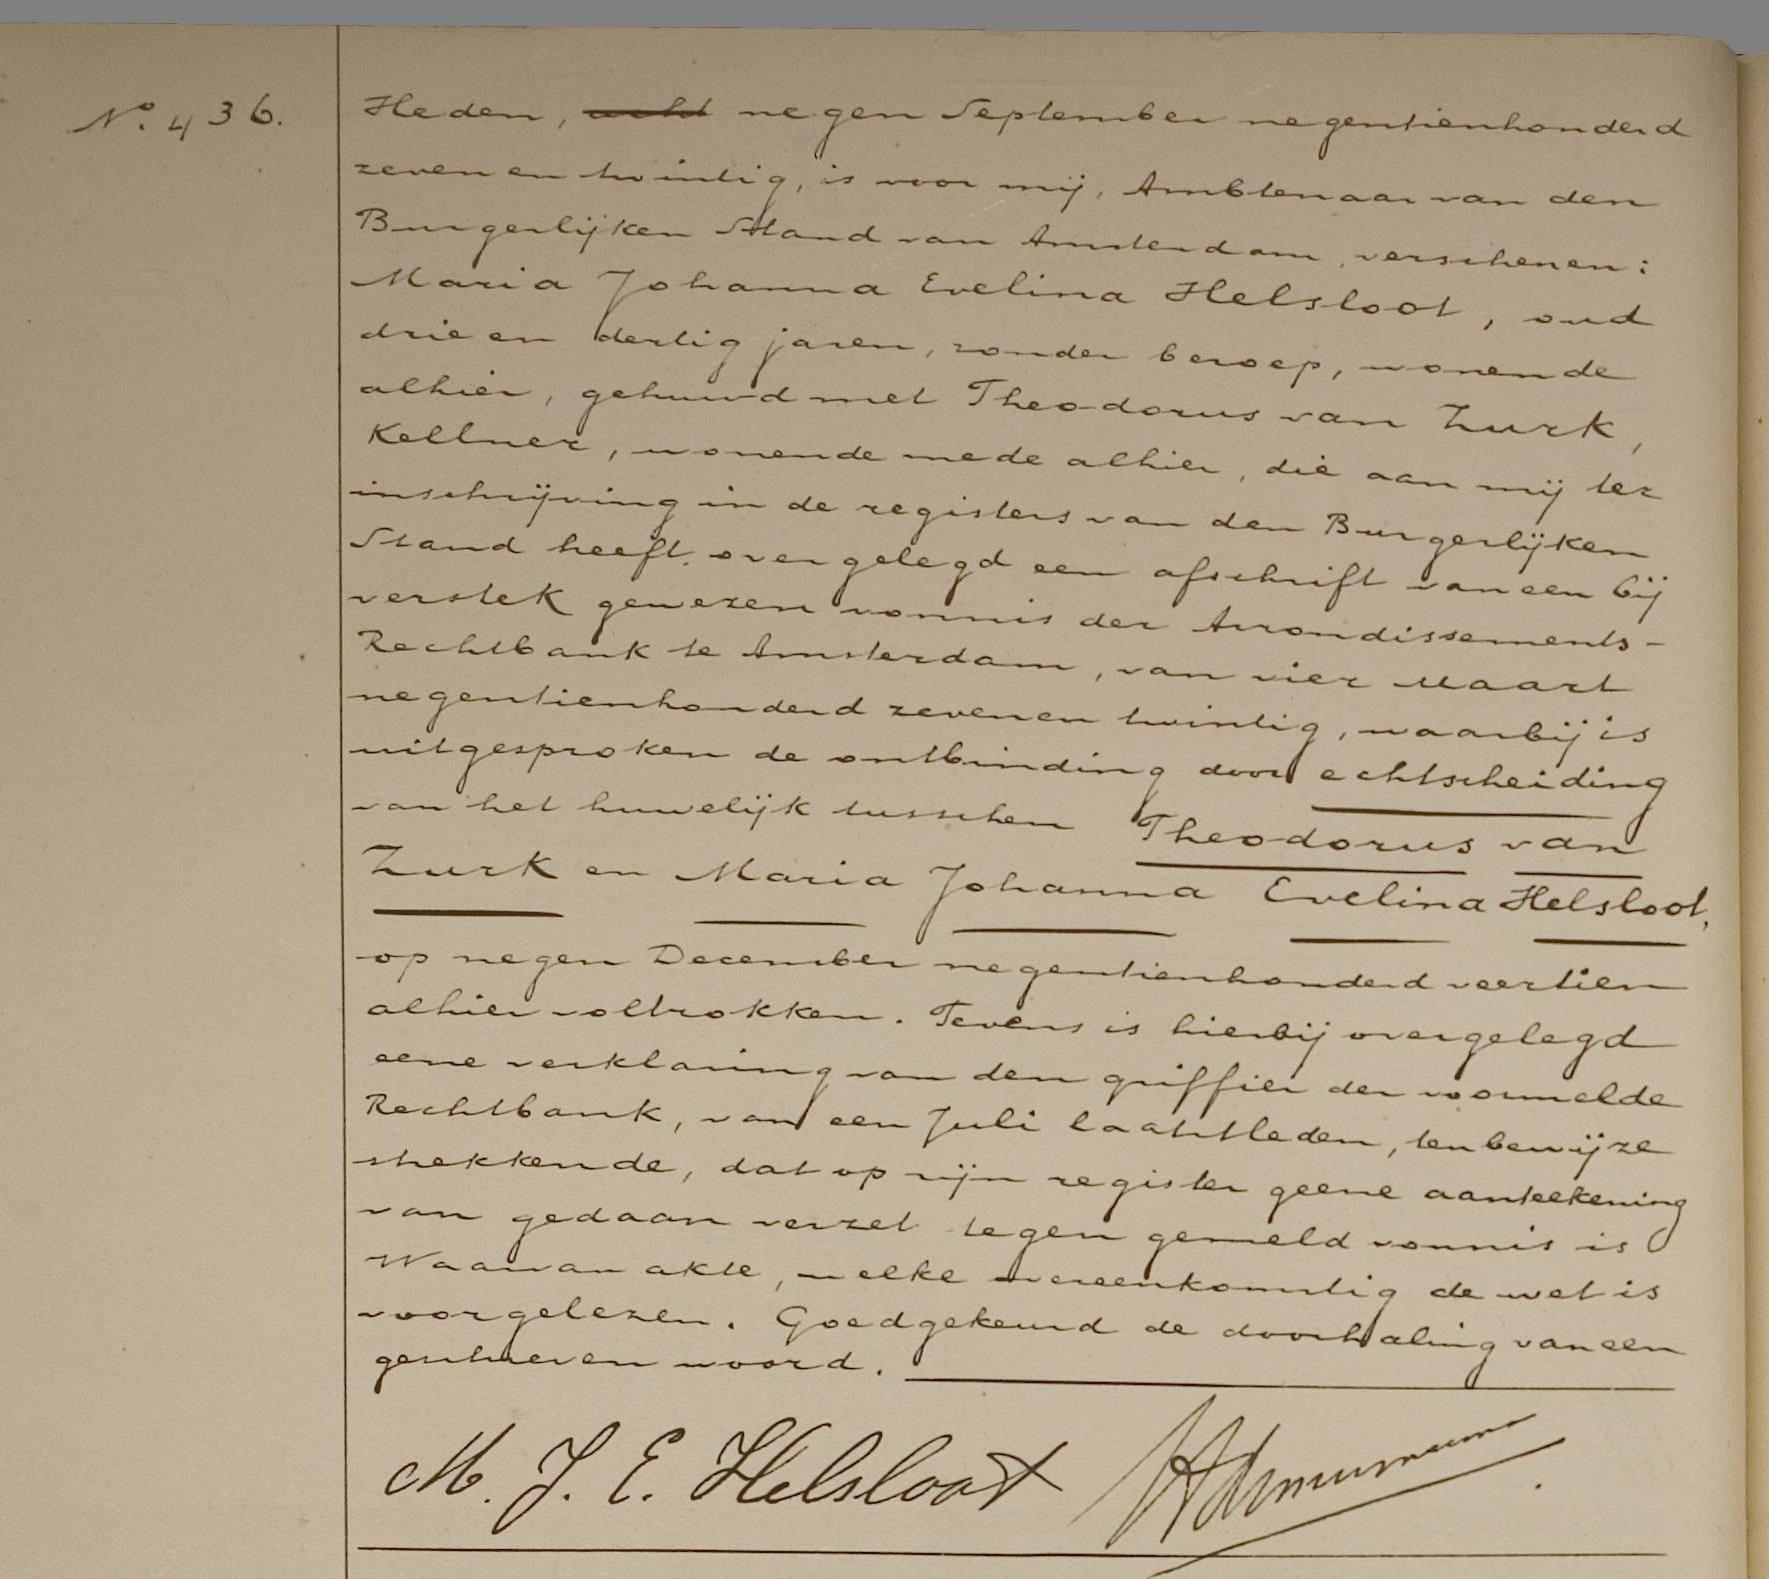 No. 436.
Heden, acht negen September negentienhonderd
zeven en twintig, is voor mij, Ambtenaar van den
Burgerlijken Stand van Amsterdam, verschenen:
Maria Johanna Evelina Helsloot, oud
drie en dertig jaren, zonder beroep, wonende
alhier, gehuwd met Theodorus van Zurk,
Kellner, wonende mede alhier, die aan mij ter
inschrijving in de registers van den Burgerlijken
Stand heeft overgelegd een afschrift van een bij
verstek gewezen vonnis der Arrondissements-
Rechtbank te Amsterdam, van vier Maart
negentienhonderd zeven en twintig, waarbij is
uitgesproken de ontbinding door echtscheiding
van het huwelijk tusschen Theodorus van
Zurk en Maria Johanna Evelina Helsloot,
op negen December negentienhonderd veertien
alhier voltrokken. Tevens is hierbij overgelegd
eene verklaring van den griffier der voormelde
Rechtbank, van een Juli laatstleden, ten bewijze
strekkende, dat op zijn register geene aanteekening
van gedaan verzet tegen gemeld vonnis is
Waarvan akte, welke overeenkomstig de wet is
voorgelezen. Goedgekeurd de doorhaling van een
geschreven woord.
M. J. E. Helsloot